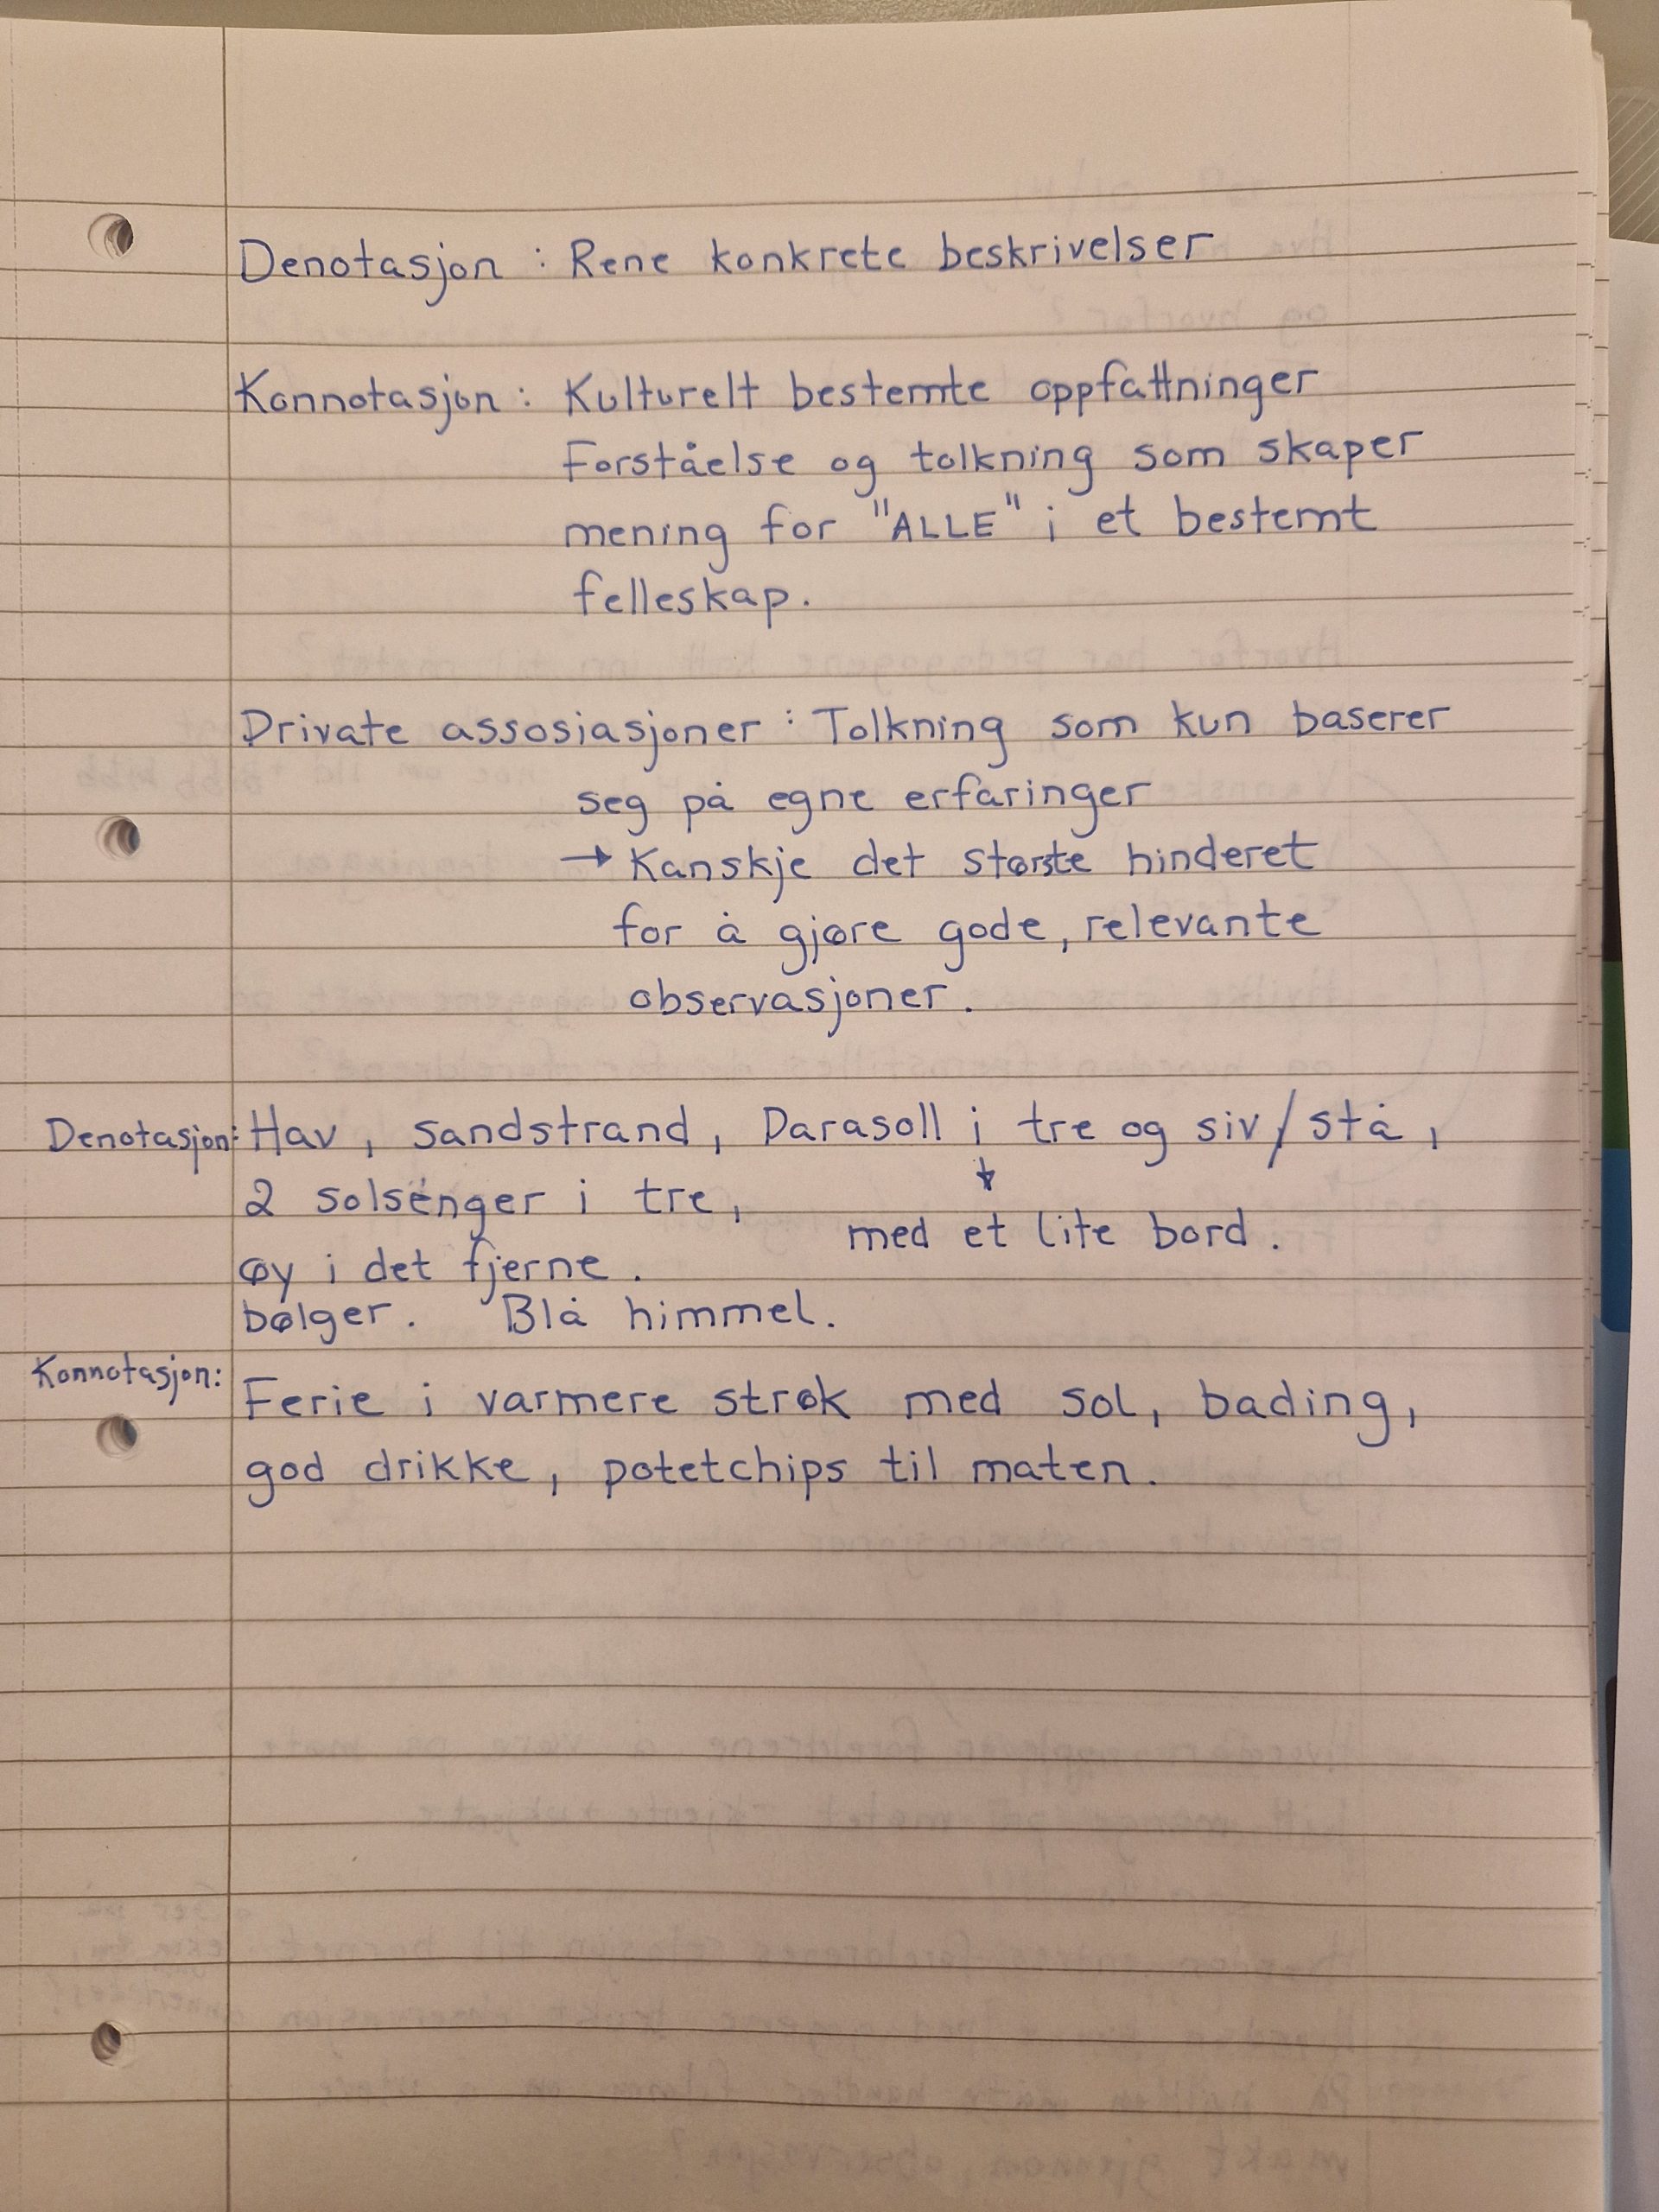 Denotasjon : Rene konkrete beskrivelser
Konnotasjon : Kulturelt bestemte oppfattninger
Forståelse og tolkning som skaper
mening for "ALLE" i et bestemt
felleskap.
Private assosiasjoner : Tolkning som kun baserer
seg på egne erfaringer
→ Kanskje det største hinderet
for å gjøre gode, relevante
observasjoner.
Denotasjon: Hav, sandstrand, Parasoll i tre og siv/strå,
2 solsenger i tre,
med et lite bord.
øy i det fjerne.
bølger. Blå himmel.
Konnotasjon:
Ferie i varmere strøk med sol, bading,
god drikke, potetchips til maten.